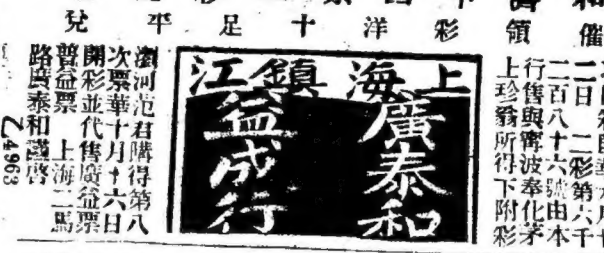 催領彩洋十足平兌
二日二彩第六千
二百八十六號由本
行售與寧波奉化茅
上珍翁所得下附彩
上海
鎮江
廣泰和
益成行
瀏河范君購得第八
次票華十月十六日
開彩並代售廣益票
普益票 上海二馬
路廣泰和謹啓
乙4963